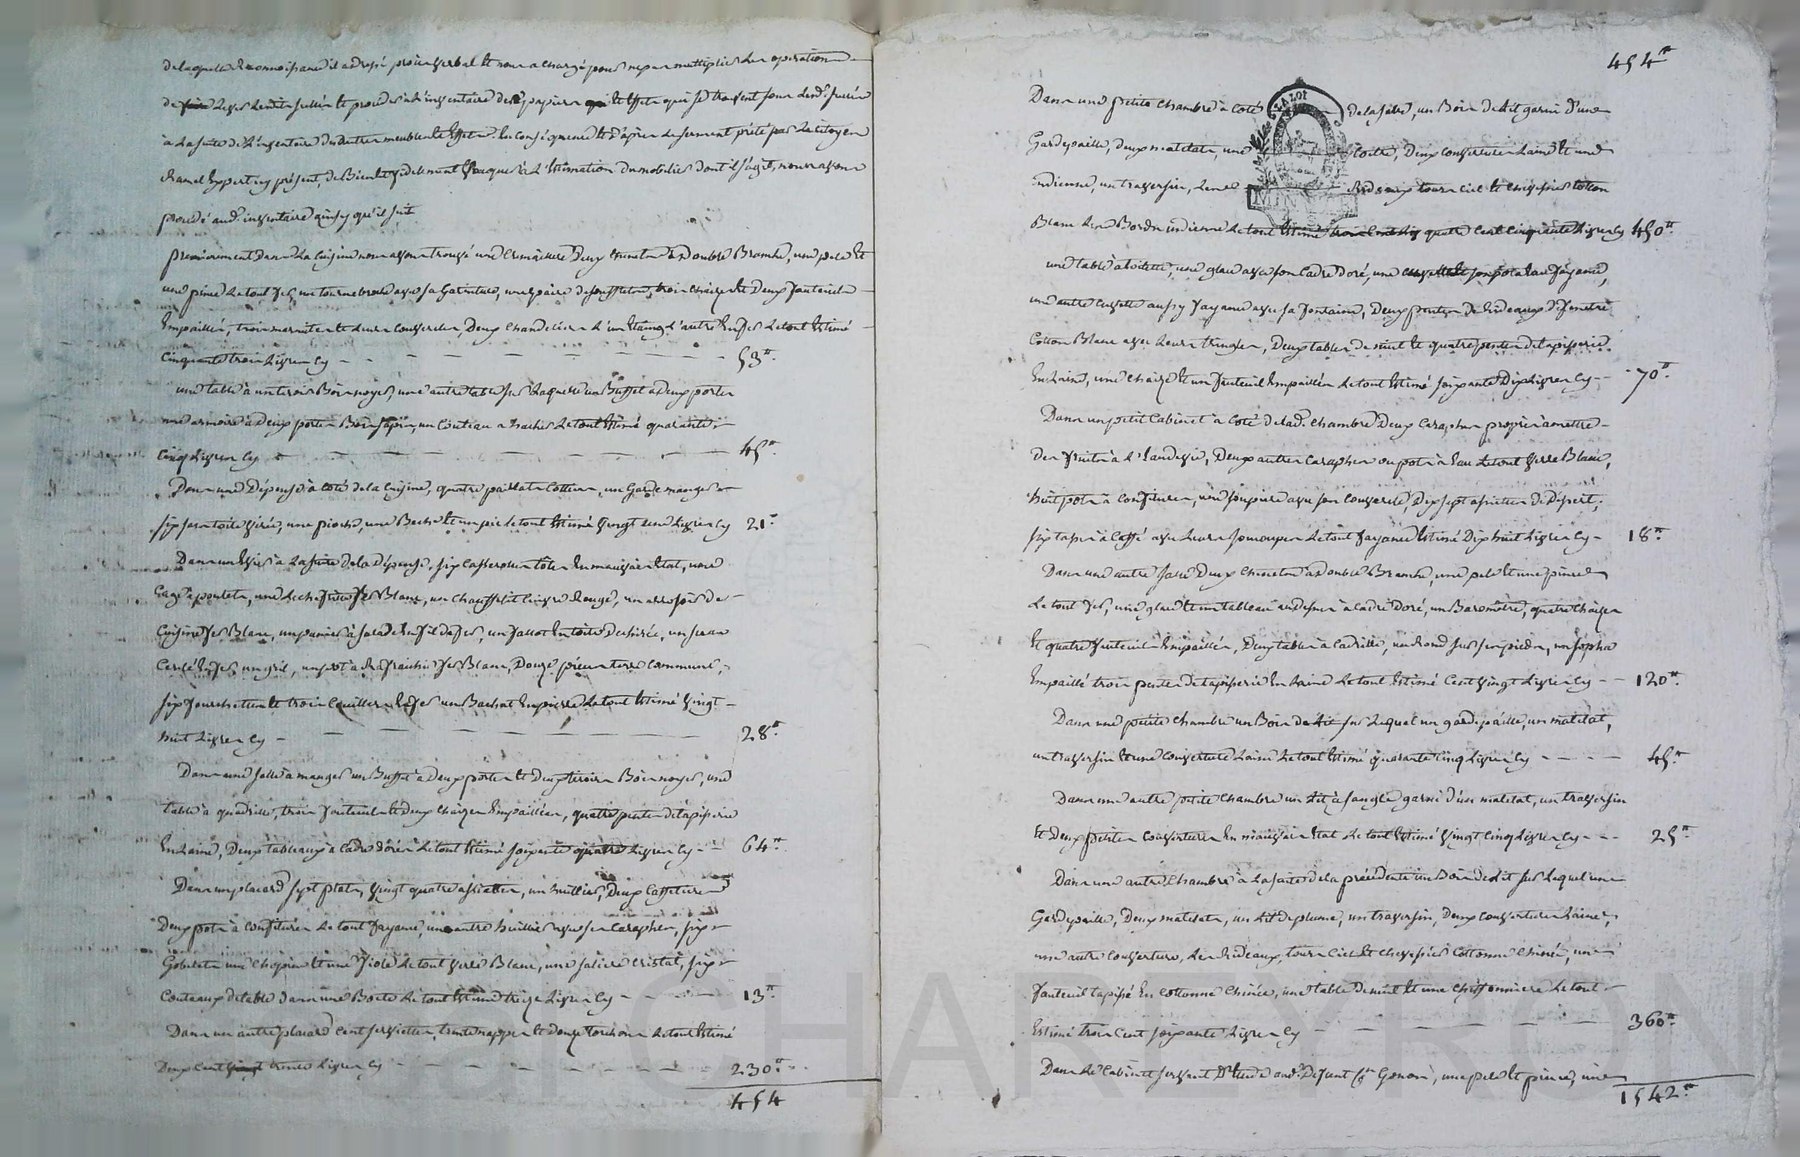 de laquelle Reconnoissance il a dressé procès verbal Et nous a chargé pour ne pas multiplier les operations
de Lever Lesdits scellés Et proceder à L'inventaire des papiers Et Effets qui se trouvent sous Lesd. scellés
à La suite de L'inventaire des autres meubles Et Effets. En conséquence Et d'après Le serment prêté par Le citoyen
Expert cy présent, de Bien Et fidelement vaquer à L'Estimation du mobilier dont il s'agit, nous avons
procédé aud. inventaire ainsy qu'il suit
premierement Dans La Cuisine nous avons trouvé une Cremaillere Deux Chenets à Double Branche, une pele Et
une pince Le tout fer, un tournebroche avec sa Garniture, une paire de soufflets, trois chaizes Et Deux fauteuils
Empaillés, trois marmites Et leurs Couvercles, Deux Chandeliers L'un Etaing L'autre En fer Le tout Estimé
Cinquante trois Livres Cy - - - - 53.tt
une table à un tiroir Bois noyer, une autre table sur Laquelle un Buffet à Deux portes
une armoire à Deux portes Bois sapin, un Couteau a hacher Le tout Estimé quarante
Cinq Livres Cy - - - - 45.tt
Dans une Dépense à Coté de la Cuisine, quatre Cottiers, un Garde manger
six toile cirée, une pioche, une Beche Et un pic Le tout Estimé Vingt une Livres Cy 21.tt
Dans un Evier à La suite de la Dépense, six Casseroles tôles En mauvais Etat, une
Cage à poulets, une Lechefritte fer Blanc, un Chauffelit Cuivre Rouge, un arrosoir de
Cuisine fer Blanc, un panier à salade En fil de fer, un fallot En toile Dechirée, un seau
Cerclé En fer, un gril, un pot à Rafraichir fer Blanc, Douze pieces terre Commune,
six fourchettes Et trois Cuilliers En fer un Bachat En pierre Le tout Estimé Vingt
huit Livres Cy - - - - 28.tt
Dans une salle à manger un Buffet à Deux portes Et Deux tiroirs Bois noyer, une
table à quadrille, trois fauteuils Et Deux Chaizes Empaillées, quatre pentes de tapisserie
En Laine, Deux tableaux à Cadre Dorés Le tout Estimé soixante quatre Livres Cy - - 64.tt
Dans un placard sept plats, Vingt quatre assiettes, un huillier, Deux Caffetieres
Deux pots à Confitures Le tout fayance, un autre huillier avec ses Caraphes, six
Gobelets une Chopine Et une fiole Le tout Verre Blanc, une saliere Cristal, six
Couteaux de table dans une Boete Le tout Estimé treize Livres Cy - - - 13.tt
Dans un autre placard Cent serviettes, trente nappes Et Douze torchons Le tout Estimé
Deux Cent Vingt trente Livres Cy - - - - 230.tt
454
454tt
Dans une petite chambre à Coté de la salle, un Bois de Lit garni d'une
Gardepaille, Deux matelats, une Coitre, Deux Couvertures Laine Et une
indienne, un traversin, Les Rideaux tour Ciel Et chevessier Cotton
LA LOI
Blanc Les Bordes indienne Le tout Estimé trois Cent dix quatre Cent Cinquante Livres Cy 450.tt
une table à toilette, une glace avec son Cadre Doré, une cuvette Et son pot à Eau fayance,
une autre Cuvette aussy fayance avec sa fontaine, Deux pentes de Rideaux de fenetre
Cotton Blanc avec Leurs tringles, Deux tables de nuit Et quatre pentes de tapisserie
En Laine, une Chaize Et un fauteuil Empaillés Le tout Estimé soixante Dix Livres Cy - 70.tt
Dans un petit Cabinet à Coté de lad. chambre Deux Caraphes propres à mettre
Des fruits à L'Eaudevie, Deux autres Caraphes ou pots à Eau Le tout Verre Blanc,
huit pots à Confitures, une soupiere avec son Couvercle, Dix sept assiettes de Désert,
six tasses à Caffé avec Leurs soucoupes Le tout fayance Estimé Dix huit Livres Cy - 18.tt
Dans une autre salle Deux Chenets à Double Branche, une pele Et une pince
Le tout fer, une glace Et un tableau au dessus à Cadre Doré, un Barométre, quatre Chaizes
Et quatre fauteuils Empaillés, Deux tables à Cadrille, un Rond sur son pied, un sopha
Empaillé trois pentes de tapisserie En Laine Le tout Estimé Cent Vingt Livres Cy - - 120.tt
Dans une petite chambre un Bois de Lit sur Lequel un gardepaille, un matelat,
un traversin Et une Couverture Laine Le tout Estimé quarante Cinq Livres Cy - - - - 45.tt
Dans une autre petite chambre un Lit à sangle garni d'un matelat, un traversin
Et Deux petites Couvertures En mauvais Etat Le tout Estimé Vingt Cinq Livres Cy - - - 25.tt
Dans une autre Chambre à La suite de la précédente un Bois de Lit sur Lequel une
Gardepaille, Deux matelats, un Lit de plume, un traversin, Deux Couvertures Laine,
une autre Couverture, Les Rideaux, tour Ciel Et chevessier Cottonne Chinée, un
fauteuil tapissé En Cottonne Chinée, une table de nuit Et une Chiffonniere Le tout
Estimé trois Cent soixante Livres Cy - - - - 360.tt
Dans Le Cabinet servant D'Etude aud. Defunt Cn. Genoni, une pele Et pince, une
1542.tt
TCHARLYRON